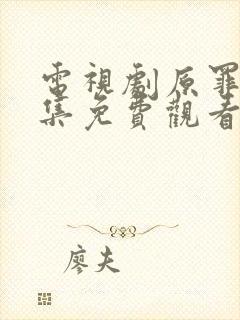 電視劇原罪
集免費觀看
廖夫